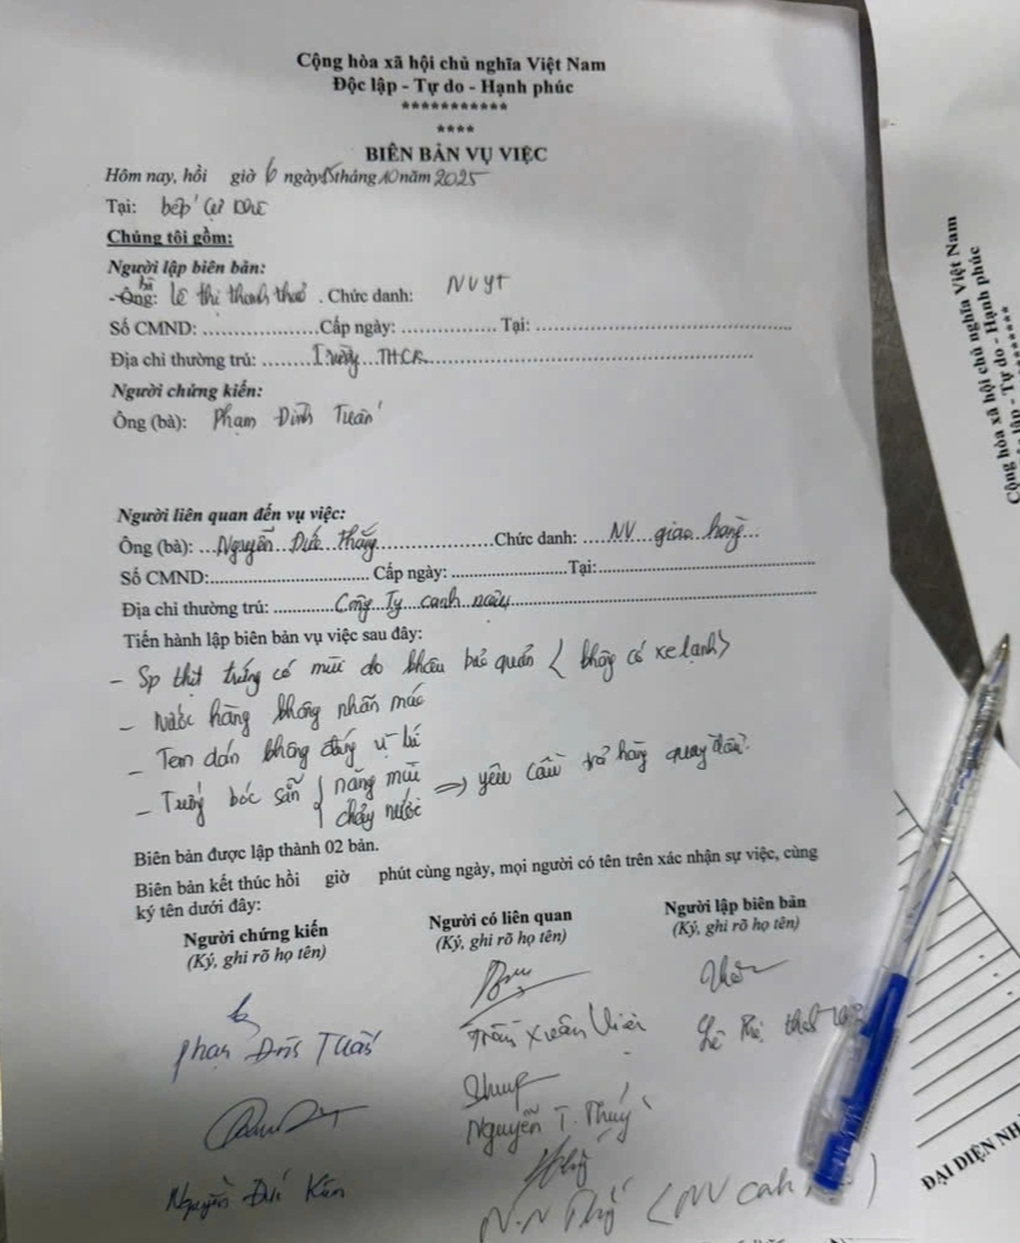 Cộng hòa xã hội chủ nghĩa Việt Nam
Độc lập - Tự do - Hạnh phúc
***********
****
BIÊN BẢN VỤ VIỆC
Hôm nay, hồi giờ 6 ngày 15 tháng 10 năm 2025
Tại: bếp
Chúng tôi gồm:
Người lập biên bản:
bà
- Ông: Lê thị thanh thảo . Chức danh: NVYT
Số CMND: ................... Cấp ngày: ............... Tại: ........................................
Địa chỉ thường trú: ........ Trường THCR ........................................
Người chứng kiến:
Ông (bà): Phạm Đình Tuấn
Người liên quan đến vụ việc:
Ông (bà): ... Nguyễn Đức Thắng ................... Chức danh: .... NV giao hàng ...
Số CMND: ............................ Cấp ngày: .................... Tại: ....................................
Địa chỉ thường trú: ........... Công Ty canh ........................................
Tiến hành lập biên bản vụ việc sau đây:
- Sp thịt trứng có mùi do khâu bảo quản < không có xe lạnh >
- Nước hàng không nhãn mác
- Tem dán không đúng vị trí
- Trứng bóc sẵn { nặng mùi
chảy nước => yêu cầu trả hàng quay đầu.
Biên bản được lập thành 02 bản.
Biên bản kết thúc hồi giờ phút cùng ngày, mọi người có tên trên xác nhận sự việc, cùng
ký tên dưới đây:
Người chứng kiến Người có liên quan Người lập biên bản
(Ký, ghi rõ họ tên) (Ký, ghi rõ họ tên) (Ký, ghi rõ họ tên)
Phạm Đình Tuấn Trần Xuân Lê Thị
Nguyễn T. Thúy
Nguyễn Đức
N.N (NV
Cộng hòa xã hội chủ nghĩa Việt Nam
Độc lập - Tự do - Hạnh phúc
********
ĐẠI DIỆN